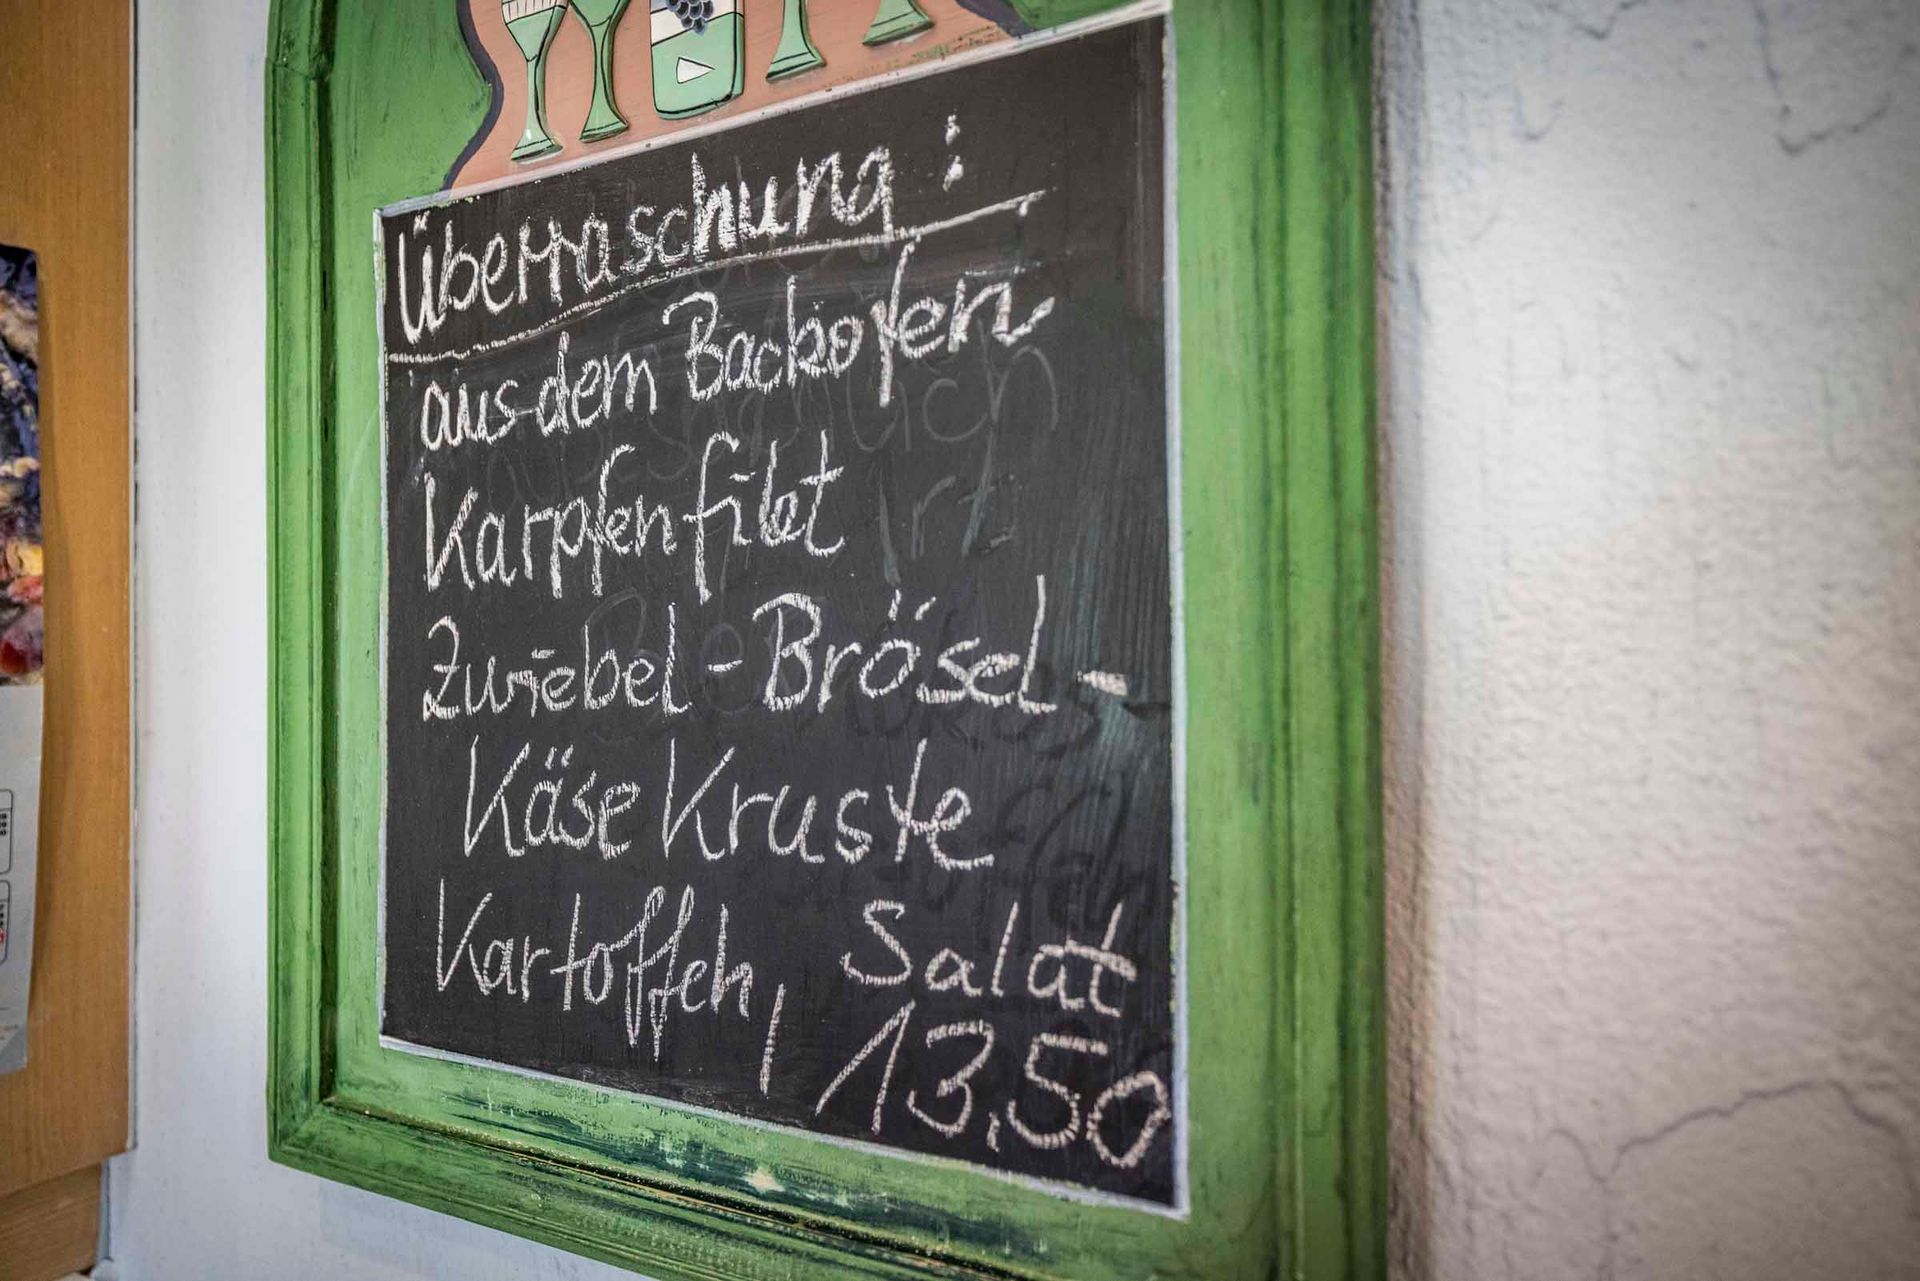 Überraschung:
aus dem Backofen
Karpfenfilet
Zwiebel-Brösel-
Käse Kruste
Kartoffeln, Salat
13,50